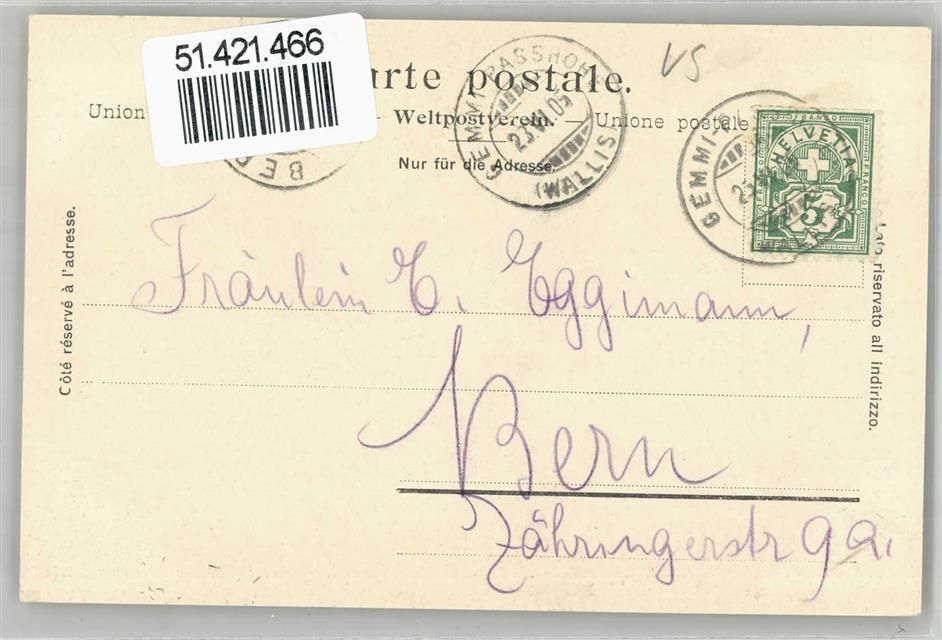 51.421.466
VS
arte postale.
Union — Weltpostverein. — Unione postale
Nur für die Adresse.
GEMMI PASSHÖHE
23.VI.05
(WALLIS)
GEMMI
FRANCO
HELVETIA
FRANCO
5
BE
Côté réservé à l'adresse.
Lato riservato all indirizzo.
Fräulein E. Eggimann,
Bern
Zähringerstr 9a.